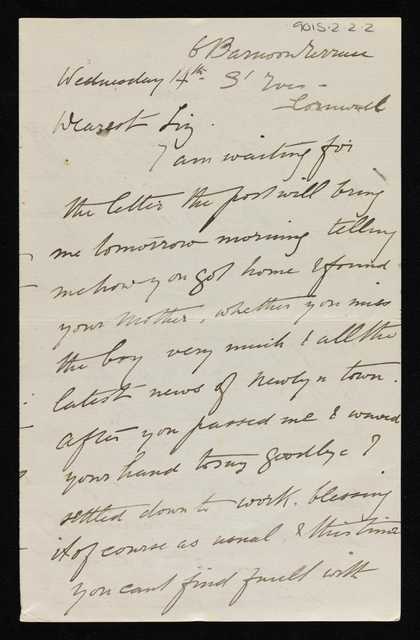 9015-2-2-2
6 Barnoon Terrace
Wednesday 14th St Ives -
Cornwall
Dearest Liz.
I am waiting for
the letter the post will bring
me tomorrow morning telling
me how you got home & found
your Mother, whether you miss
the boy very much & all the
latest news of Newlyn town.
After you passed me & waved
your hand to say goodbye I
settled down to work. blessing
it of course as usual & this time
you cant find fault with